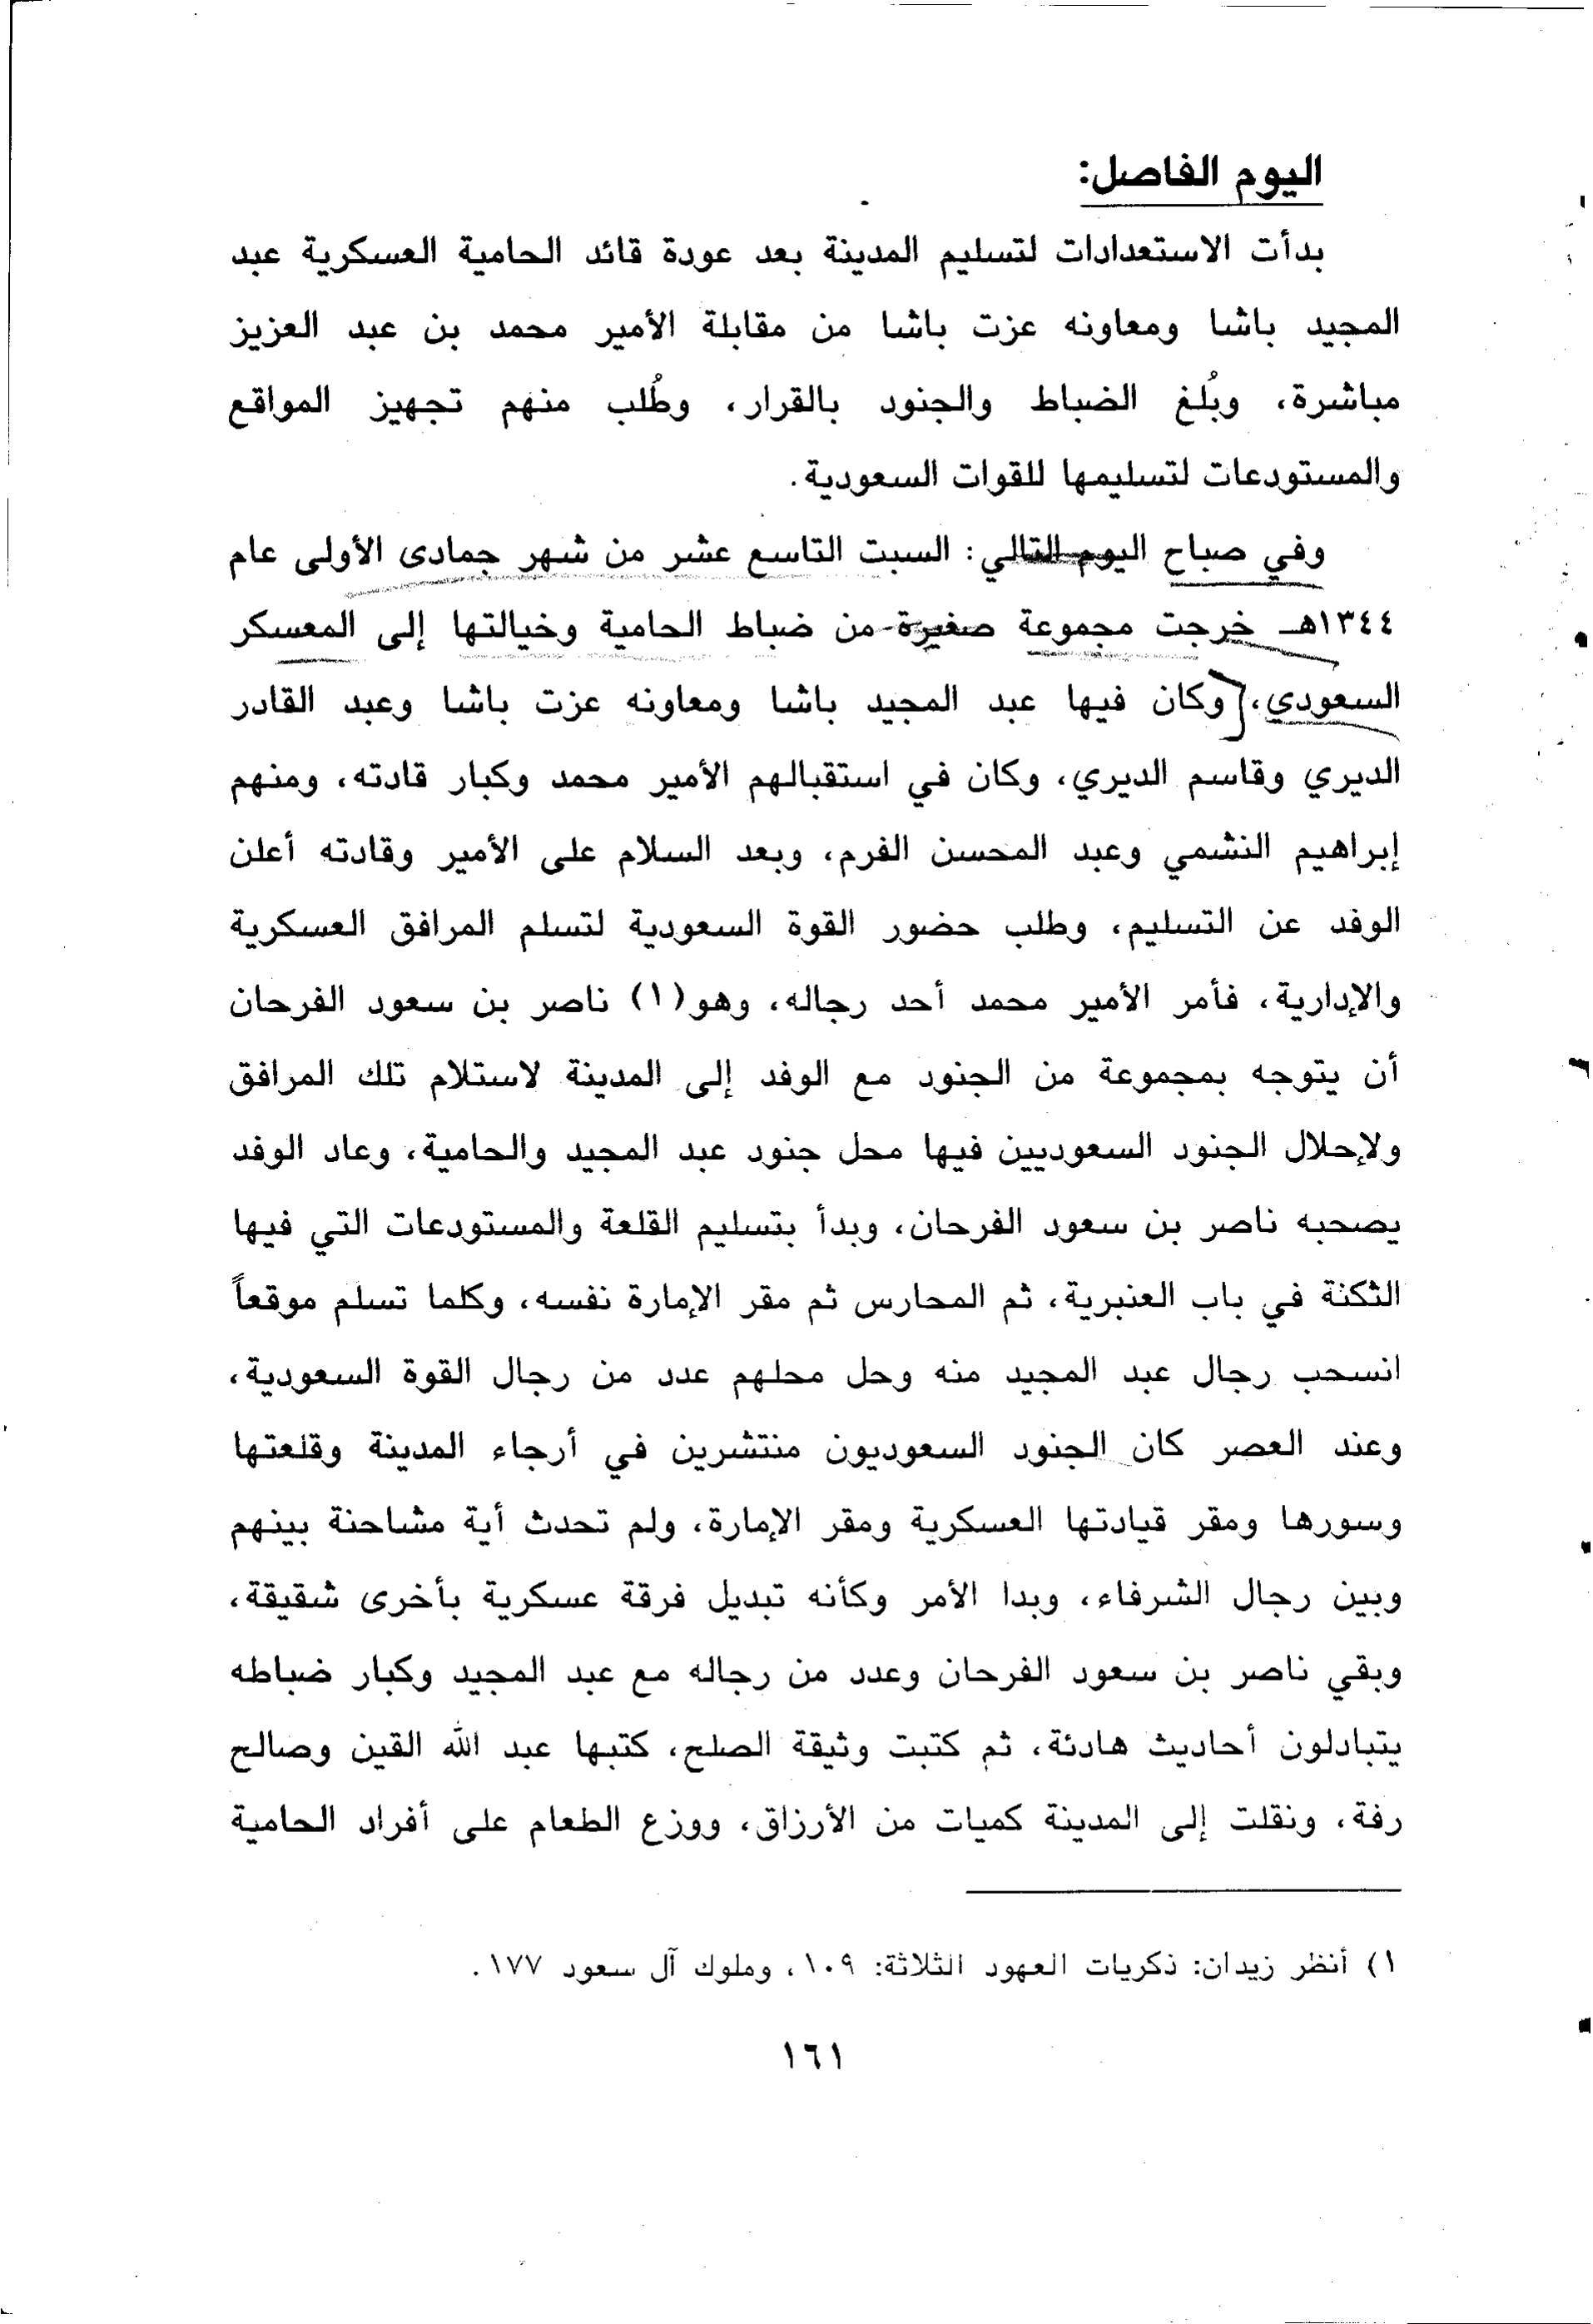 اليوم الفاصل:
بدأت الاستعدادات لتسليم المدينة بعد عودة قائد الحامية العسكرية عبد
المجيد باشا ومعاونه عزت باشا من مقابلة الأمير محمد بن عبد العزيز
مباشرة، وبُلغ الضباط والجنود بالقرار، وطُلب منهم تجهيز المواقع
والمستودعات لتسليمها للقوات السعودية.
وفي صباح اليوم التالي: السبت التاسع عشر من شهر جمادى الأولى عام
١٣٤٤هـ خرجت مجموعة صغيرة من ضباط الحامية وخيالتها إلى المعسكر
السعودي، وكان فيها عبد المجيد باشا ومعاونه عزت باشا وعبد القادر
الديري وقاسم الديري، وكان في استقبالهم الأمير محمد وكبار قادته، ومنهم
إبراهيم النشمي وعبد المحسن الفرم، وبعد السلام على الأمير وقادته أعلن
الوفد عن التسليم، وطلب حضور القوة السعودية لتسلم المرافق العسكرية
والإدارية، فأمر الأمير محمد أحد رجاله، وهو(١) ناصر بن سعود الفرحان
أن يتوجه بمجموعة من الجنود مع الوفد إلى المدينة لاستلام تلك المرافق
ولإحلال الجنود السعوديين فيها محل جنود عبد المجيد والحامية، وعاد الوفد
يصحبه ناصر بن سعود الفرحان، وبدأ بتسليم القلعة والمستودعات التي فيها
الثكنة في باب العنبرية، ثم المحارس ثم مقر الإمارة نفسه، وكلما تسلم موقعاً
انسحب رجال عبد المجيد منه وحل محلهم عدد من رجال القوة السعودية،
وعند العصر كان الجنود السعوديون منتشرين في أرجاء المدينة وقلعتها
وسورها ومقر قيادتها العسكرية ومقر الإمارة، ولم تحدث أية مشاحنة بينهم
وبين رجال الشرفاء، وبدا الأمر وكأنه تبديل فرقة عسكرية بأخرى شقيقة،
وبقي ناصر بن سعود الفرحان وعدد من رجاله مع عبد المجيد وكبار ضباطه
يتبادلون أحاديث هادئة، ثم كتبت وثيقة الصلح، كتبها عبد الله القين وصالح
رفة، ونقلت إلى المدينة كميات من الأرزاق، ووزع الطعام على أفراد الحامية
١) أنظر زيدان: ذكريات العهود الثلاثة: ١٠٩، وملوك آل سعود ١٧٧.
١٦١